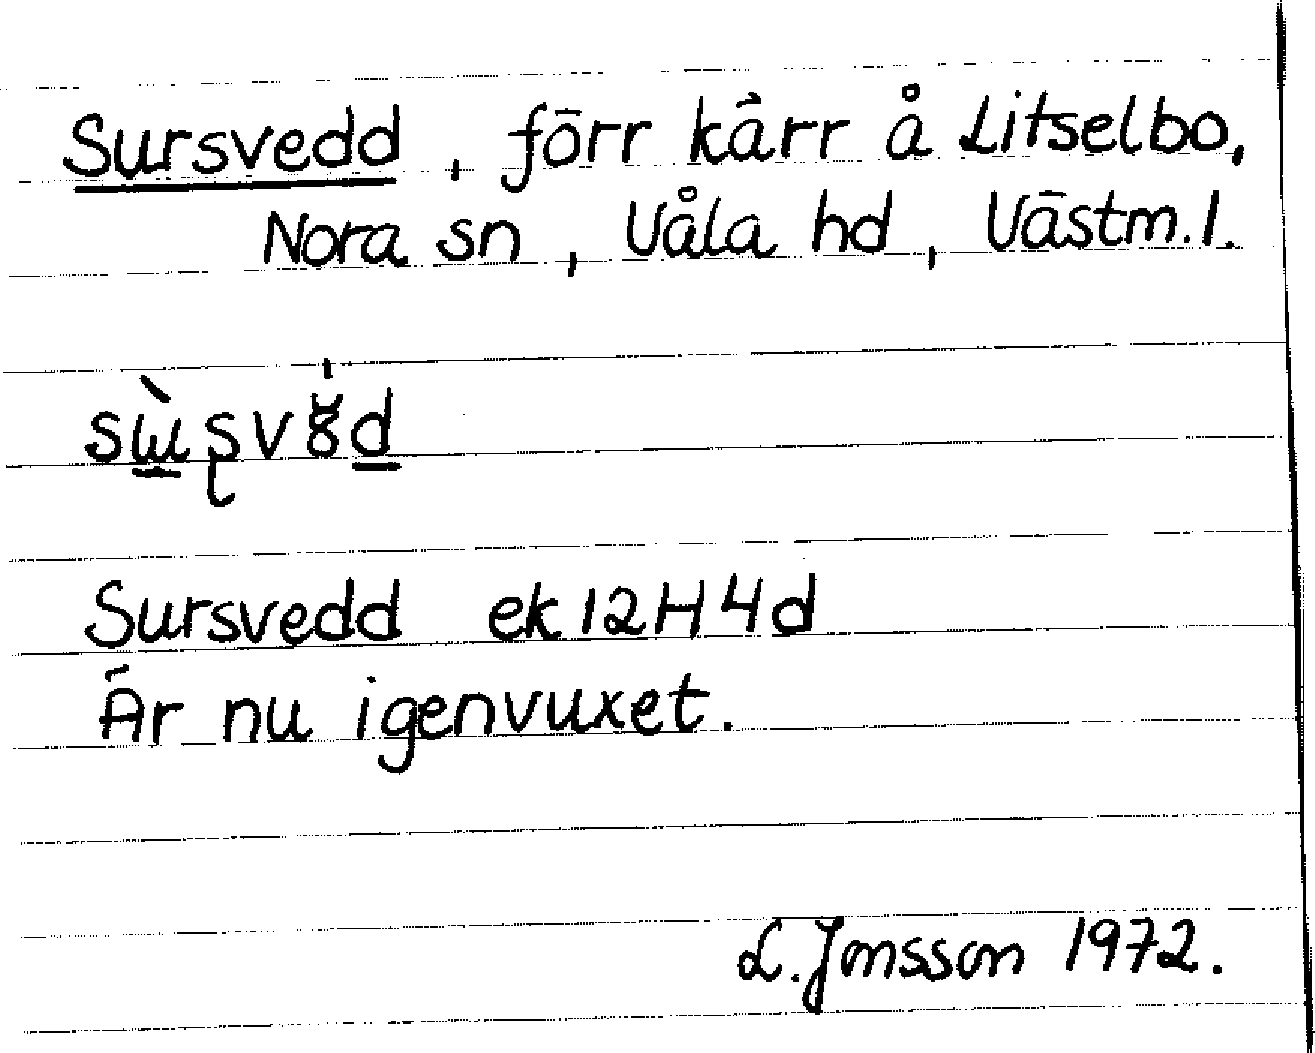 Sursvedd, förr kärr å Litselbo,
Nora sn, Våla hd, Västm.l.
Sursvedd ek 12H4d
Är nu igenvuxet.
L. Jonsson 1972.